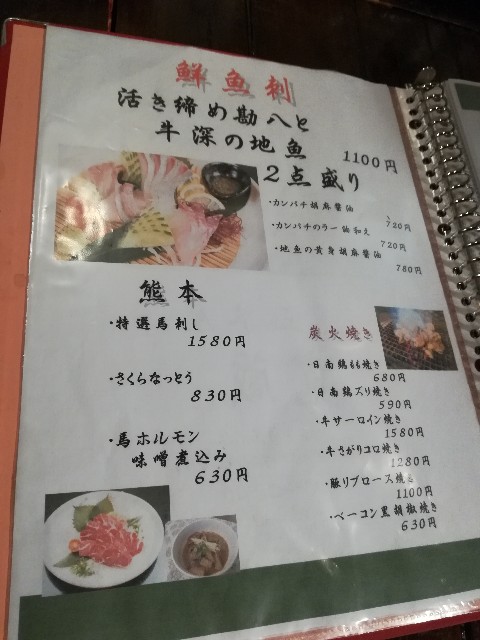 鮮魚刺
活き締め勘八と
牛深の地魚
1100円
2点盛り
・カンパチ胡麻醤油
720円
・カンパチのラー油和え
720円
・地魚の黄身胡麻醤油
780円
熊本
・特選馬刺し
1580円
・さくらなっとう
830円
・馬ホルモン
味噌煮込み
630円
炭火焼き
・日南鶏もも焼き
680円
・日南鶏ズリ焼き
590円
・牛サーロイン焼き
1580円
・牛さがりコロ焼き
1280円
・豚リブロース焼き
1100円
・ベーコン黒胡椒焼き
630円